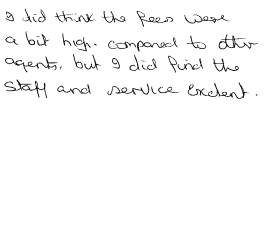 I did think the fees were
a bit high. compared to other
agents, but I did find the
staff and service excelent.